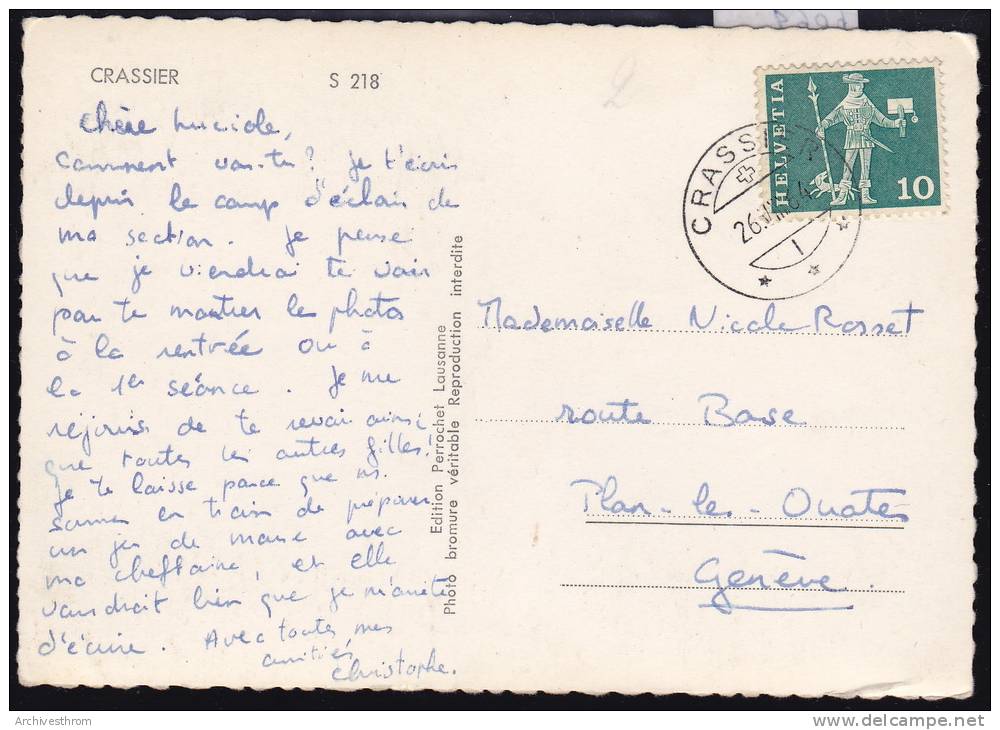 CRASSIER S 218
Chère Luciole,
comment vas-tu? Je t'écris
depuis le camp d'éclais de
ma section. Je pense
que je viendrai te voir
pour te montrer les photos
à la rentrée ou à
la 1ère séance. Je me
réjouis de te revoir ainsi
que toutes les autres filles!
Je te laisse parce que ns.
sommes en train de préparer
un jeu de masse avec
ma cheftaine, et elle
voudrait bien que je m'arrête
d'écrire. Avec toutes mes
amitiés,
Christophe.
Edition Perrochet Lausanne
Photo bromure véritable Reproduction interdite
HELVETIA
10
CRASSIER
1
Mademoiselle Nicole Rosset
route Base
Plan-les-Ouates
Genève.
Archivesthrom
delcampe.net